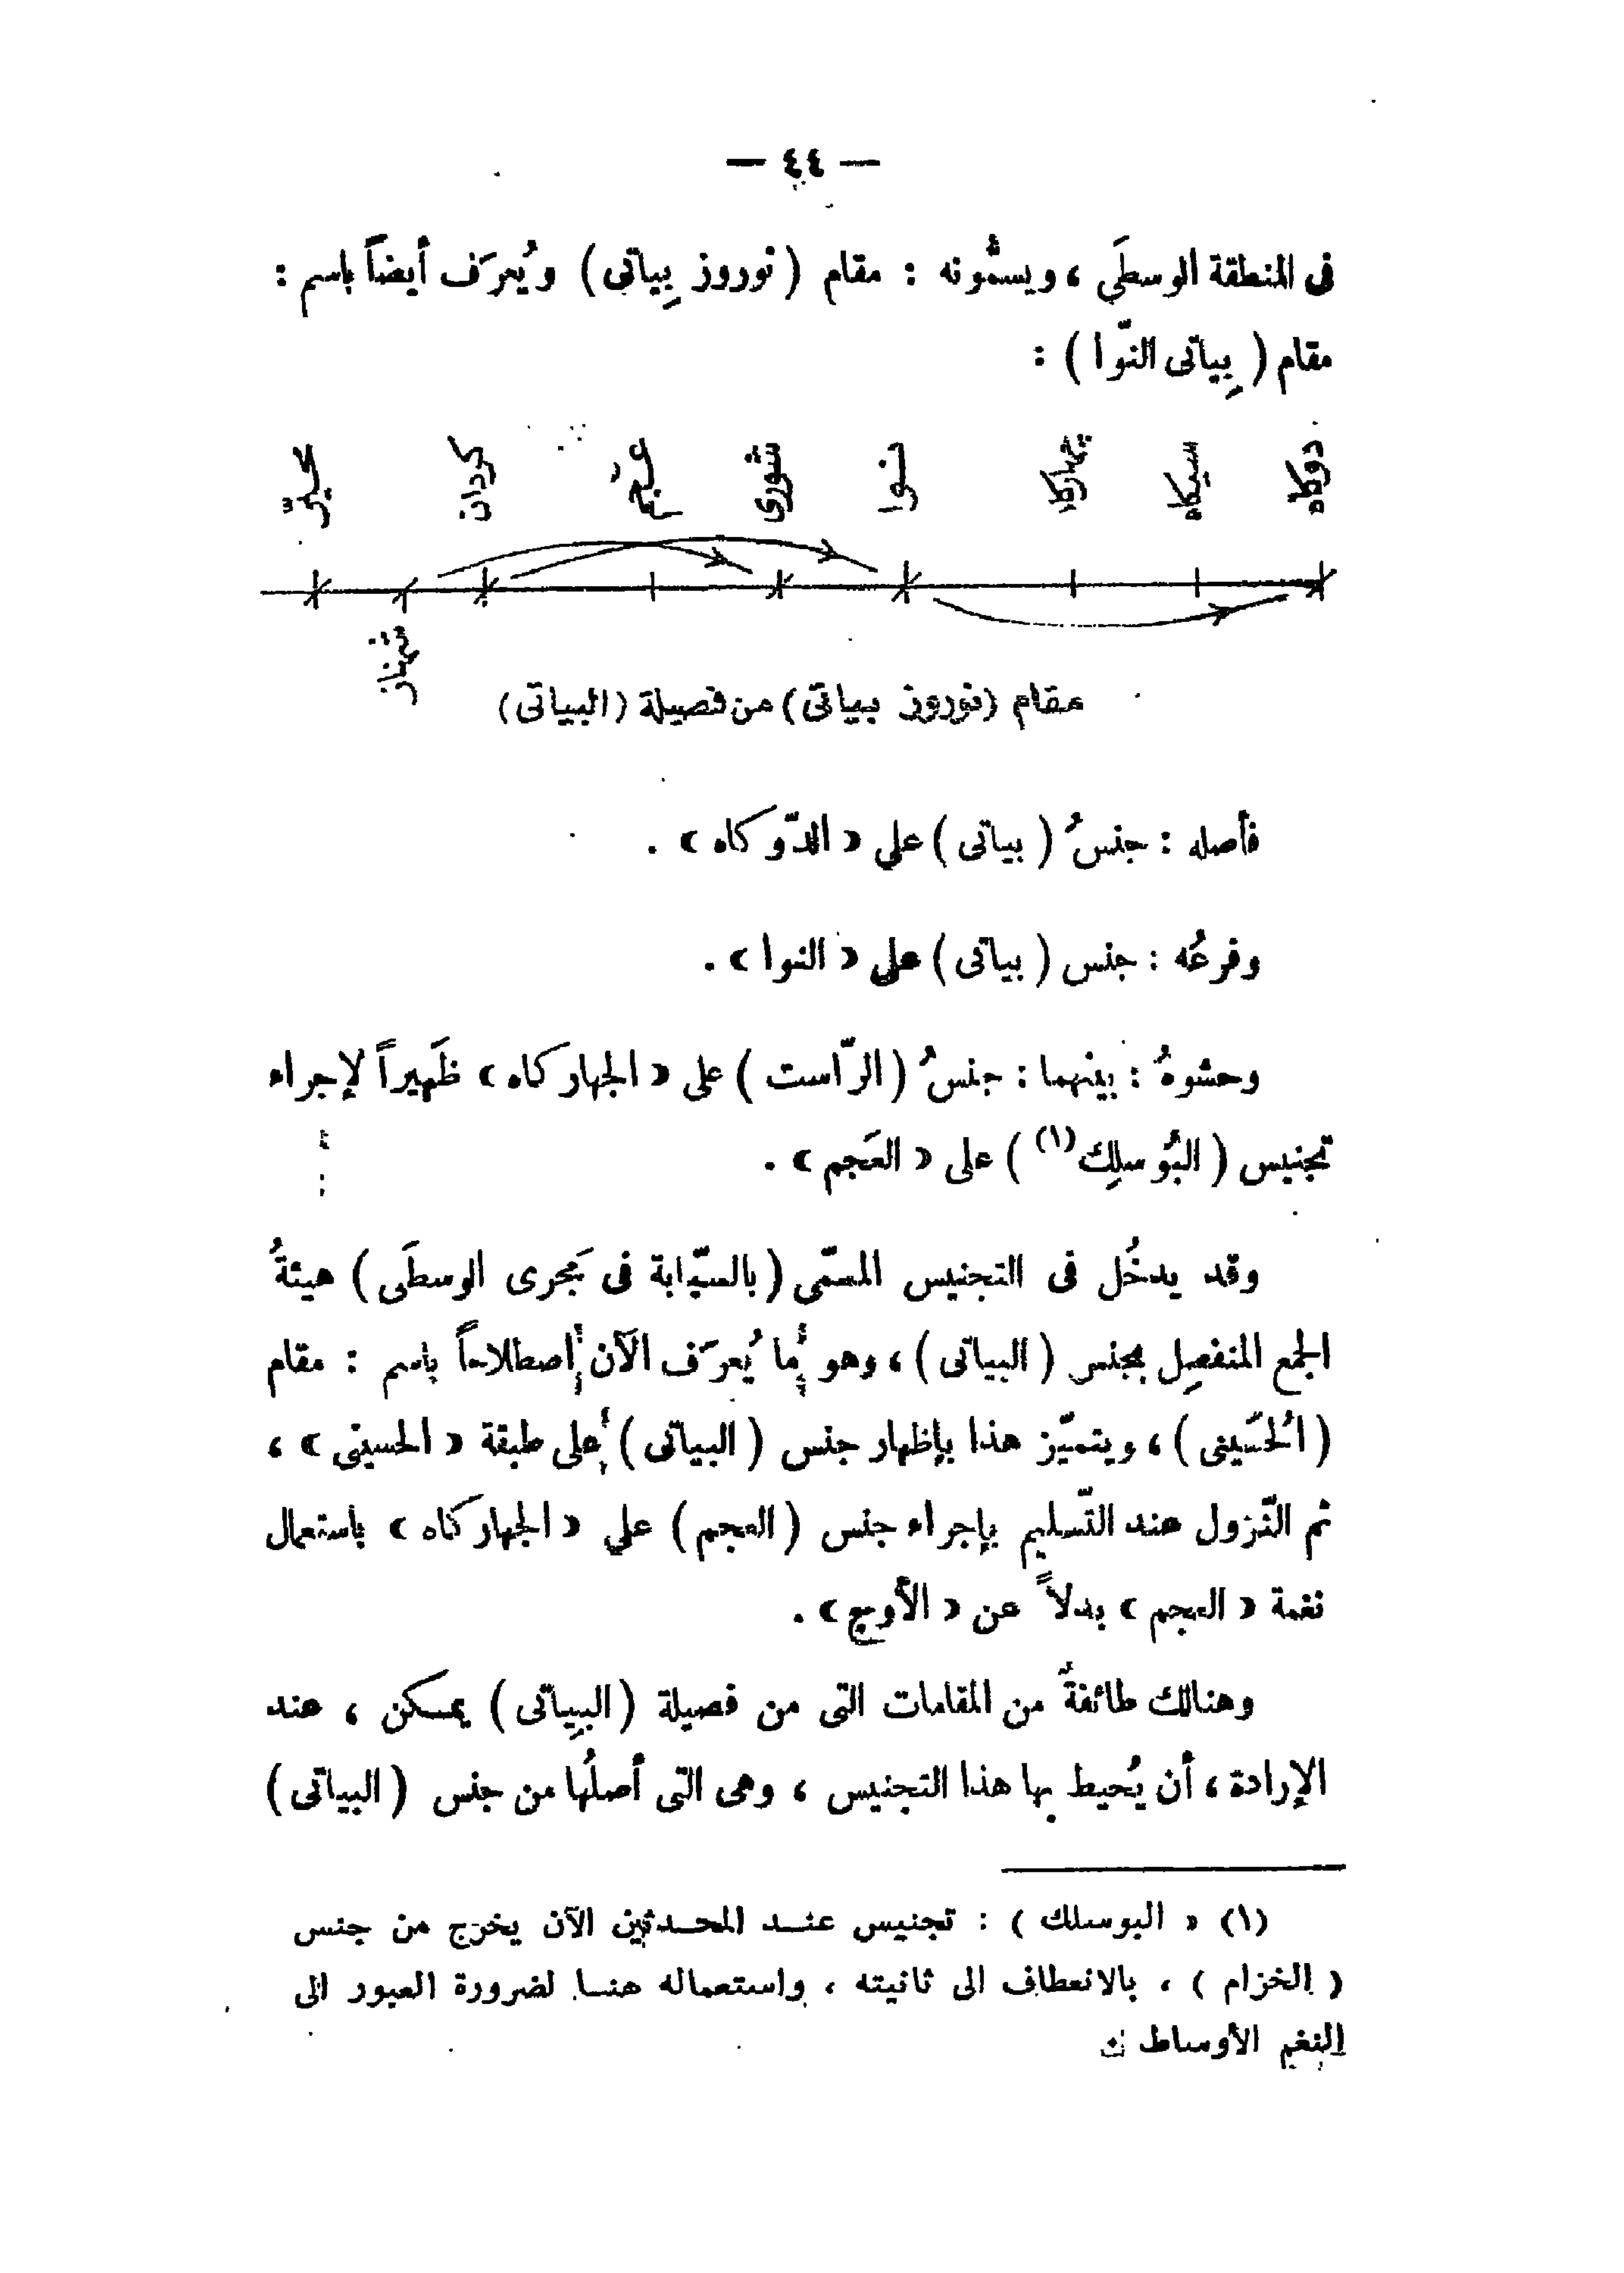 — ٤٤ —
فى المنطقة الوسطَي ، ويسمُّونه : مقام ( نوروز بِياتى ) ويُعرَف أيضاً باسم :
مقام ( بِياتى النّوا ) :
دوكاه سيكاه چهاركاه نوا شورى عجم كردان محيّر
شهناز
مقام (نوروز بياتى) من فصيلة (البياتى)
فأصله : جنسُ ( بياتى ) علي « الدّوكاه » .
وفرعُه : جنس ( بياتى ) على « النوا » .
وحشوهُ : بينهما : جنسُ ( الرّاست ) على « الجهاركاه » ظَهيراً لإجراء
تجنيس ( البُوسلِك (١) ) على « العَجم » .
وقد يدخُل فى التجنيس المسمّى ( بالسبّابة فى مَجرى الوسطَى ) هيئةُ
الجمع المنفصِل بجنس ( البياتى ) ، وهو ما يُعرَف الآن إصطلاحاً باسم : مقام
( الحُسَينى ) ، ويتميّز هذا بإظهار جنس ( البياتى ) على طبقة « الحسينى » ،
ثم النّزول عند التّسليم بإجراء جنس ( العجم ) علي « الجهاركاه » باستعمال
نغمة « العجم » بدلاً عن « الأوج » .
وهنالك طائفةٌ من المقامات التى من فصيلة ( البِياتى ) يمكن ، عند
الإرادة ، أن يُحيط بها هذا التجنيس ، وهى التى أصلُها من جنس ( البياتى )
(١) « البوسلك ) : تجنيس عند المحدثين الآن يخرج من جنس
( الخزام ) ، بالانعطاف الى ثانيته ، واستعماله هنا لضرورة العبور الى
النغم الأوساط